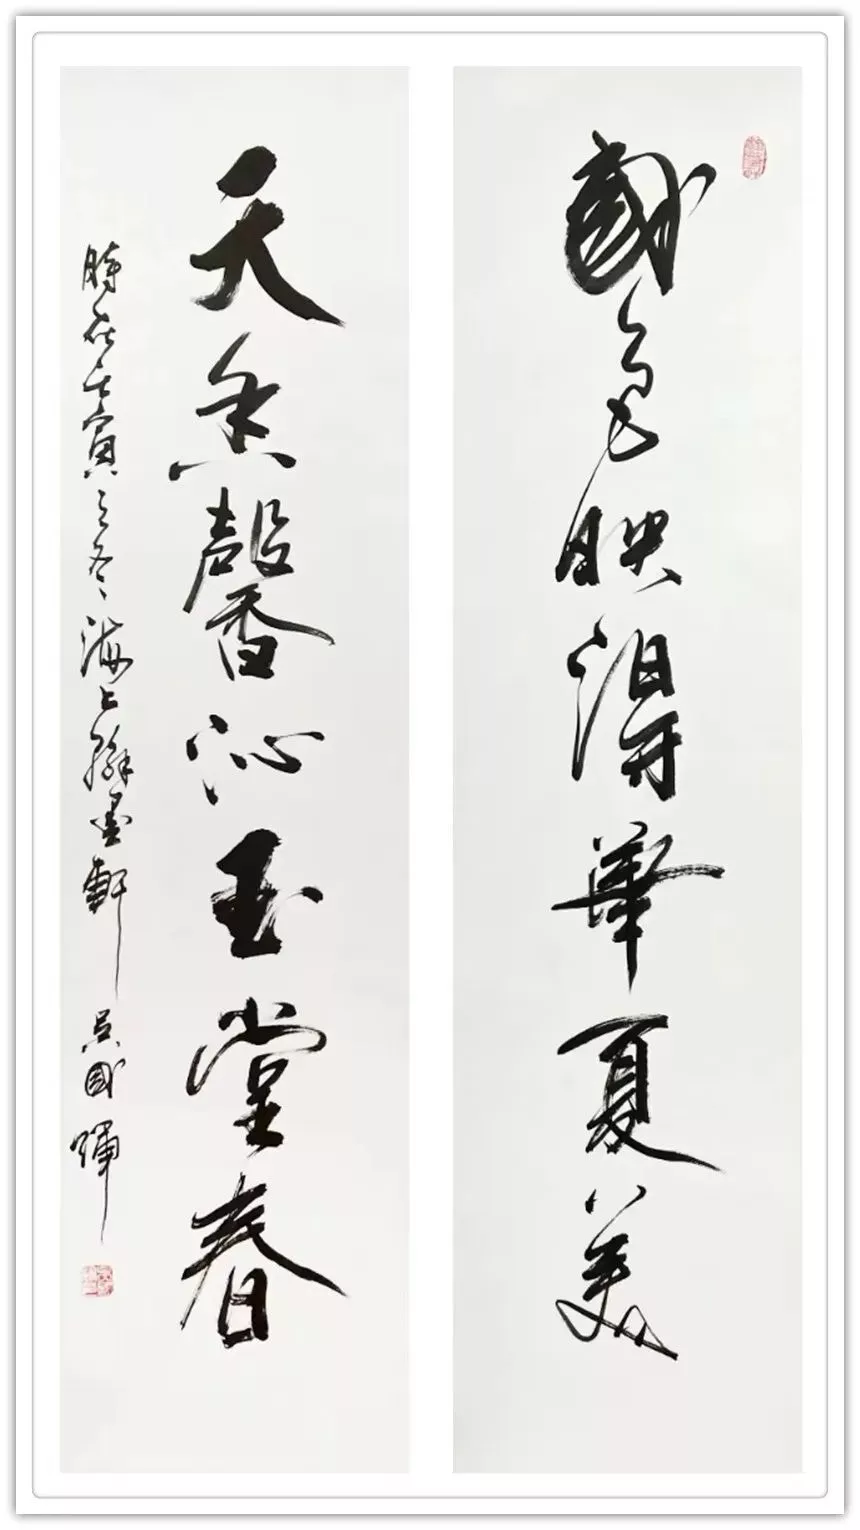 國色映得華夏美
天香馨沁玉堂春
時在壬寅之冬海上翰墨軒 吳國